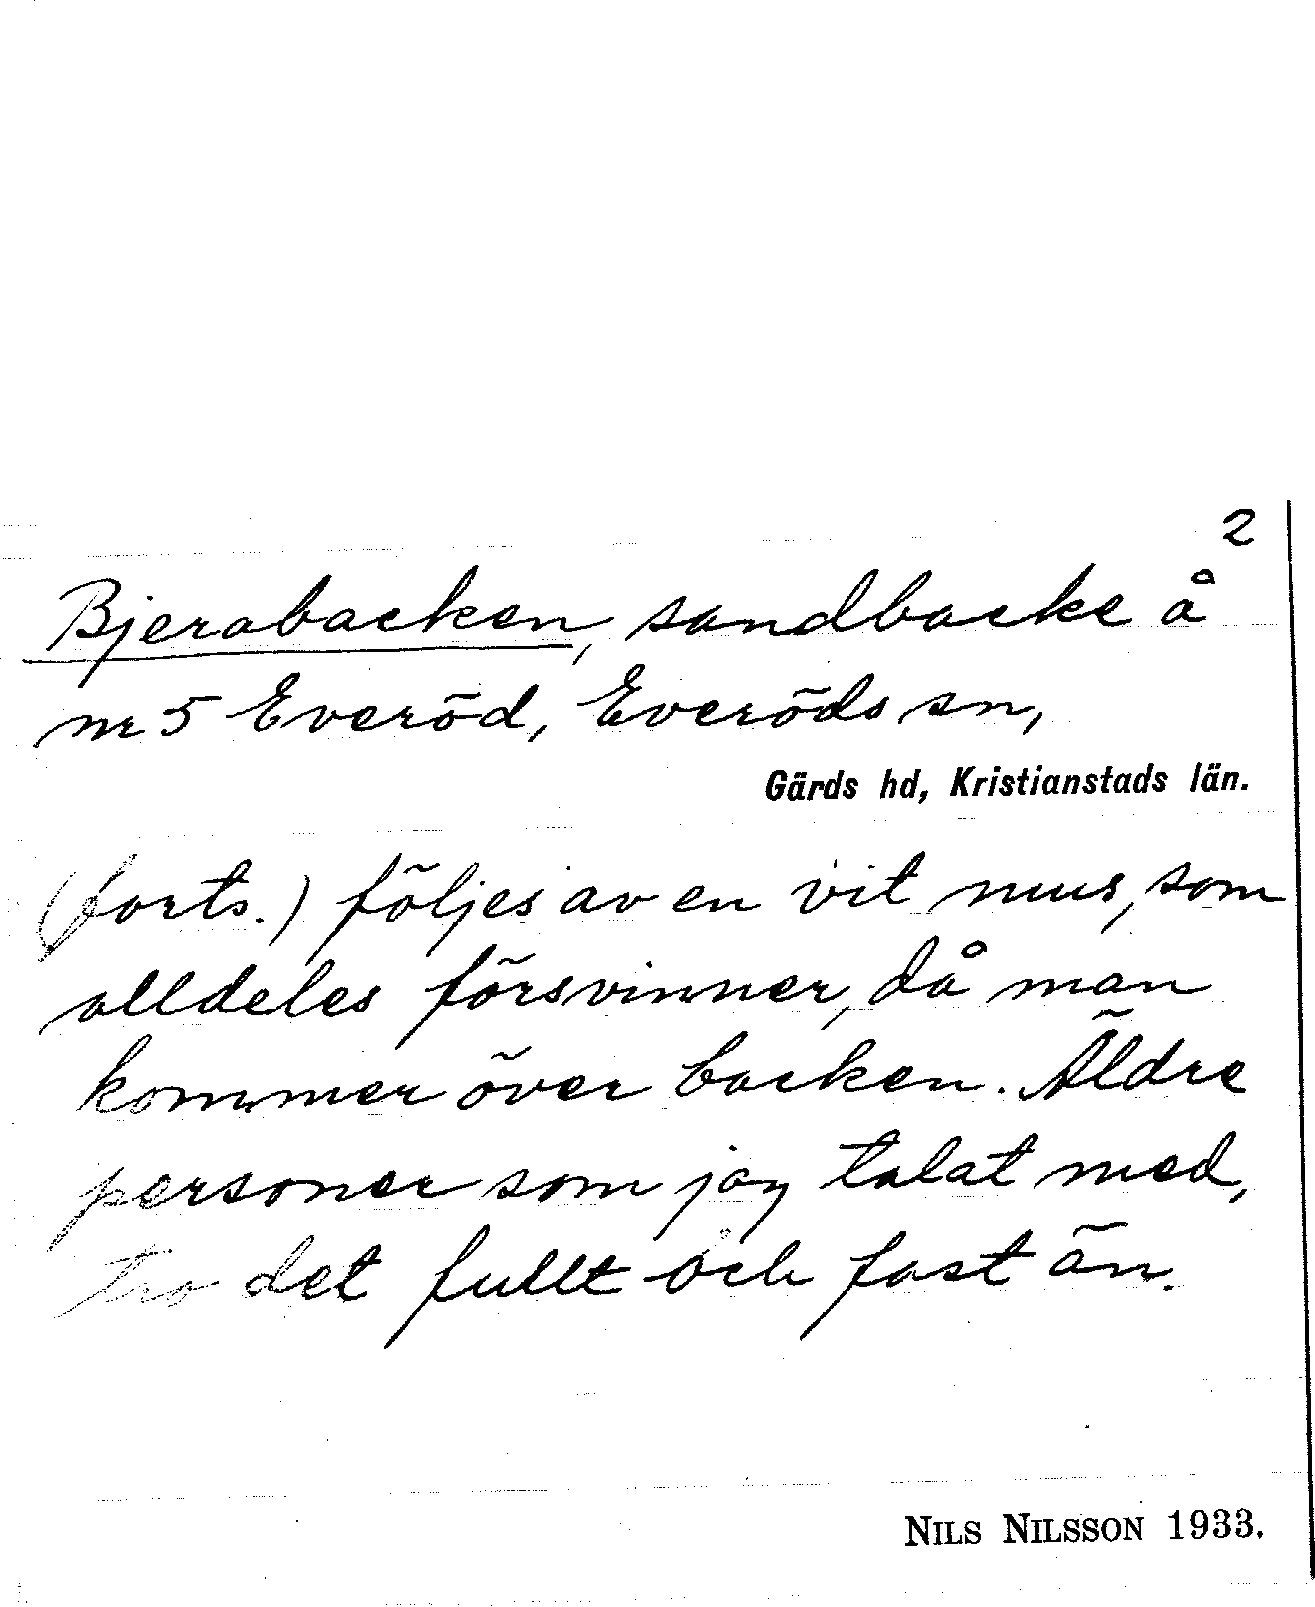 2
Bjerabacken, sandbacke å
nr 5 Everöd, Everöds sn,
Gärds hd, Kristianstads län.
(forts.) följes av en vit mus, som
alldeles försvinner, då man
kommer över backen. Äldre
personer som jag talat med,
tro det fullt och fast än.
NILS NILSSON 1933.